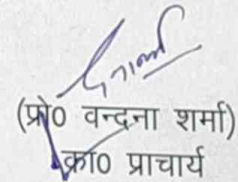 (प्रो० वन्दना शर्मा)
क्रा० प्राचार्य